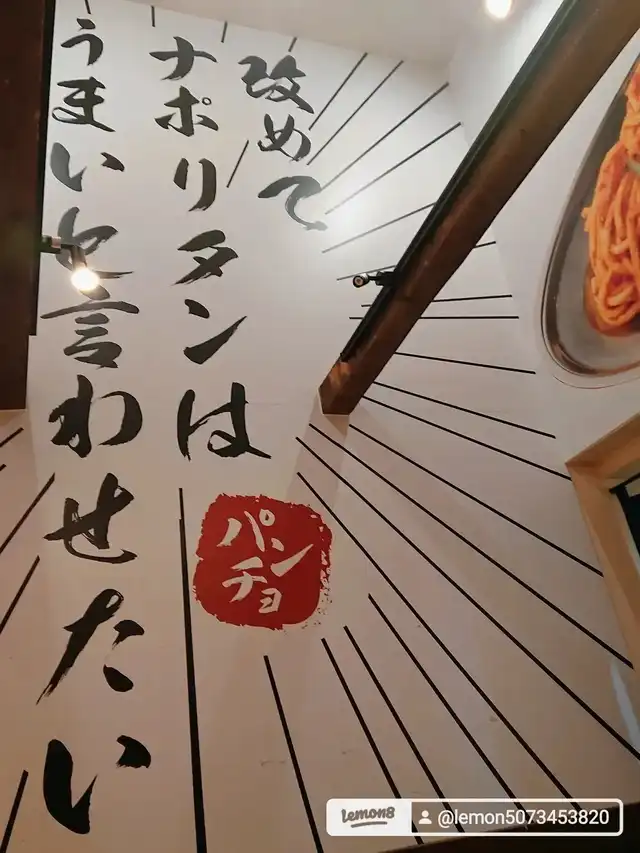 改めて
ナポリタンは
うまいと言わせたい
パンチョ
lemon8
@lemon5073453820